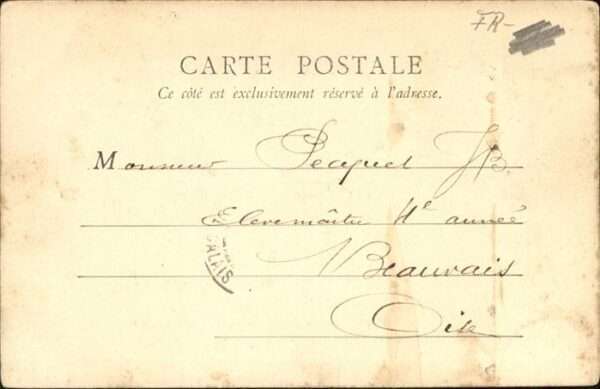 FR-
CARTE POSTALE
Ce côté est exclusivement réservé à l'adresse.
Monsieur Pecquet JB.
Elevemâitre 4e année
Beauvais
Oise
CALAIS